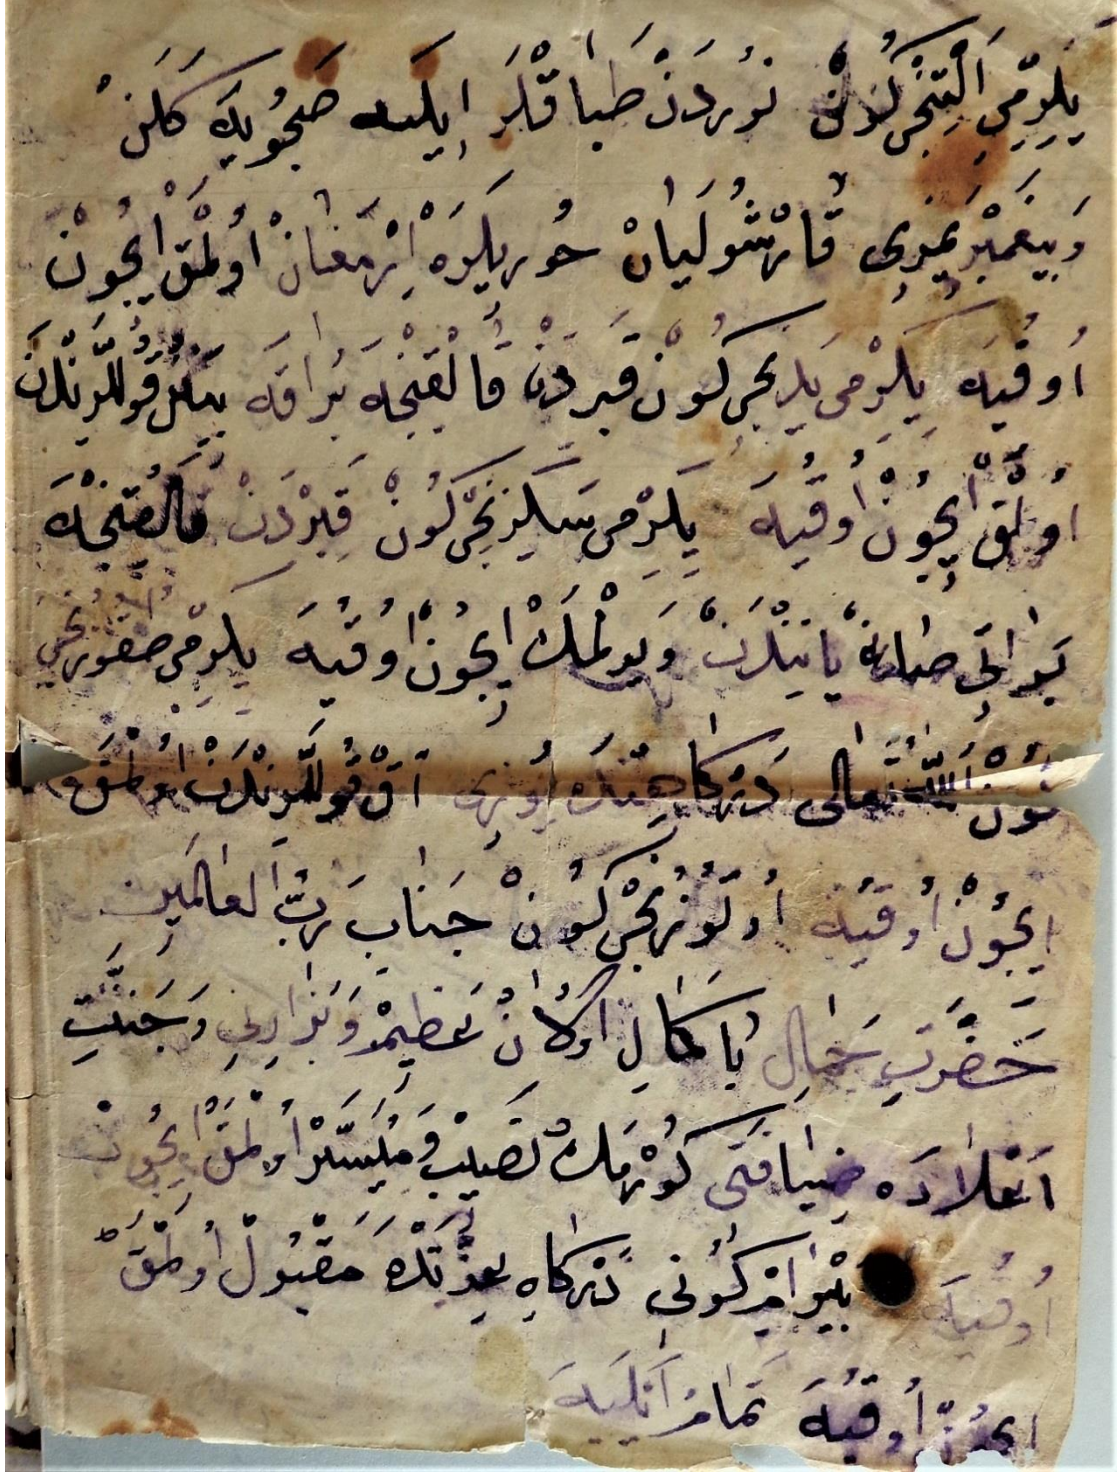 يِكِرْمِ اَلْتِنْجِى كُونْ نُورْدَنْ طَبَاقْلَرْ اِيلَه صَچُويَه كَلَنْ
وَ پيغَمْبَريمِزى قَارْشُولَيَانْ حُوريلَرَه اِرْمَغَانْ اُولْمَقْ اِيچُونْ
اُوقُيَه يِكِرْمى يَدِنْجى كُونْ قَبِرْدَنْ قَالْقِنْجَه بُرَاقَه بِينَنْ قُوللَرِنْدَنْ
اُولْمَقْ اِيچُونْ اُوقُيَه يِكِرْمى سَكِزِنْجِى كُونْ قَبِرْدَنْ قَالْقِنْجَه
يَانِنْدَنْ وَيرِلْمَكْ اِيچُونْ اُوقُيَه يِكِرْمِى طقُوزِنْجِى
كُونْ اَللّٰهُ تَعَالٰى دَرْكَاهِنْدَه اُوزى آقْ قُوللَرِنْدَنْ اُولْمَقْ
اِيچُونْ اُوقُيَه اُوتُوزُنْجِى كُونْ جَنَابِ رَبُّ الْعَالَمِينْ
حَضْرَتِ جَمَالِ بَا كَمَالِ اُولَانْ عَظِيمْ وَجَنَّتِ
اَعْلَادَه ضِيَافَتى كُورْمَكْ نَصِيبْ وَ مُيَسَّرْ اُولْمَقْ اِيچُونْ
اُوقُيَه بَيْرَامْ كُونى دَرْكَاهِ عِزَّتِنْدَه مَقْبُولْ اُولْمَقْ
اِيچُونْ اُوقُيَه تَمَامْ اَيْلَيَه